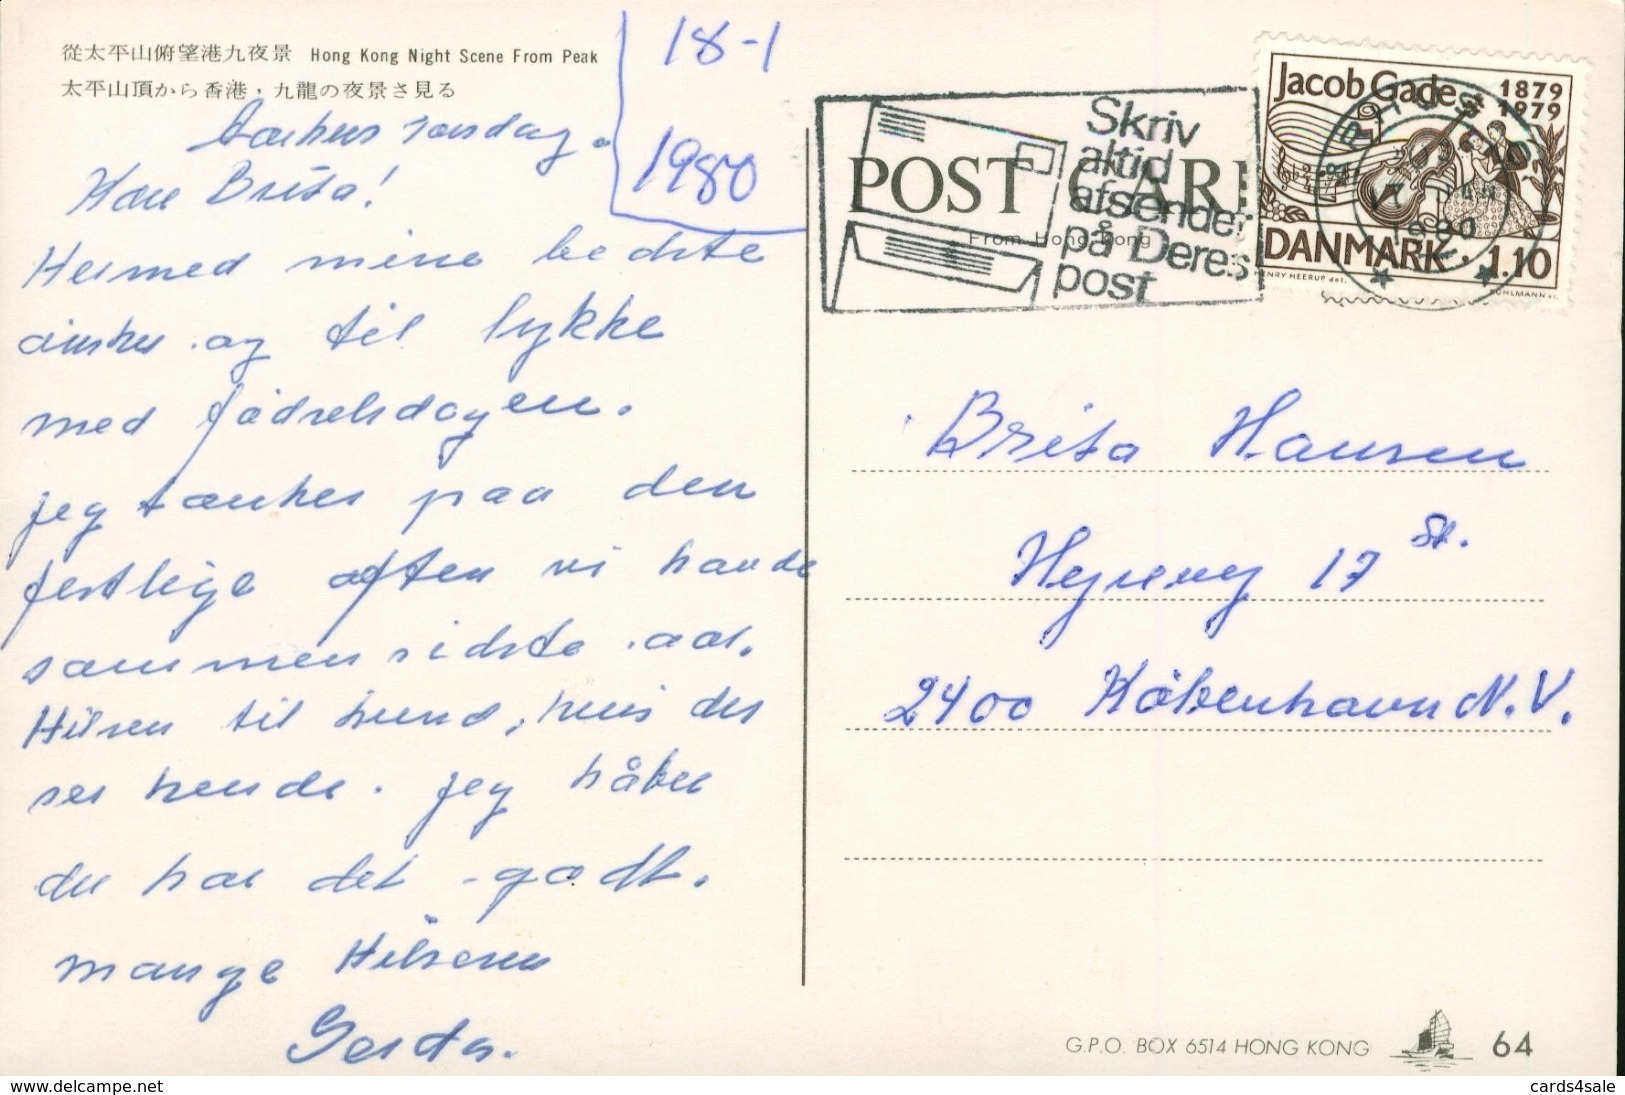 從太平山俯望港九夜景 Hong Kong Night Scene From Peak
太平山頂から香港，九龍の夜景さ見る
18-1
1980
Aarhus søndag.
Kære Brita!
Hermed mine bedste
ønsker og til lykke
med fødselsdagen.
Jeg tænker paa den
festlige aften vi havde
sammen sidste aar.
Hilsen til hund, hvis du
ser hende. Jeg håber
du har det godt.
mange Hilsener
Gerda.
POST CARD
From Hong Kong
Skriv
altid
afsender
på Deres
post
Jacob Gade 1879
1979
DANMARK · 1.10
HENRY HEERUP del.
Brita Hansen
Hejrevej 17 St.
2400 København N.V.
G.P.O. BOX 6514 HONG KONG 64
www.delcampe.net
cards4sale